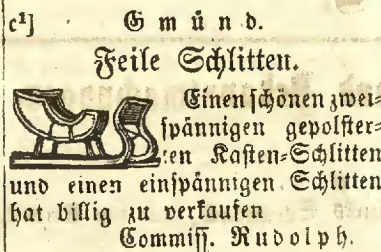 c¹] Gmünd.
Feile Schlitten.
Einen schönen zwei=
spännigen gepolster=
ten Kasten=Schlitten
und einen einspännigen Schlitten
hat billig zu verkaufen
Commiss. Rudolph.